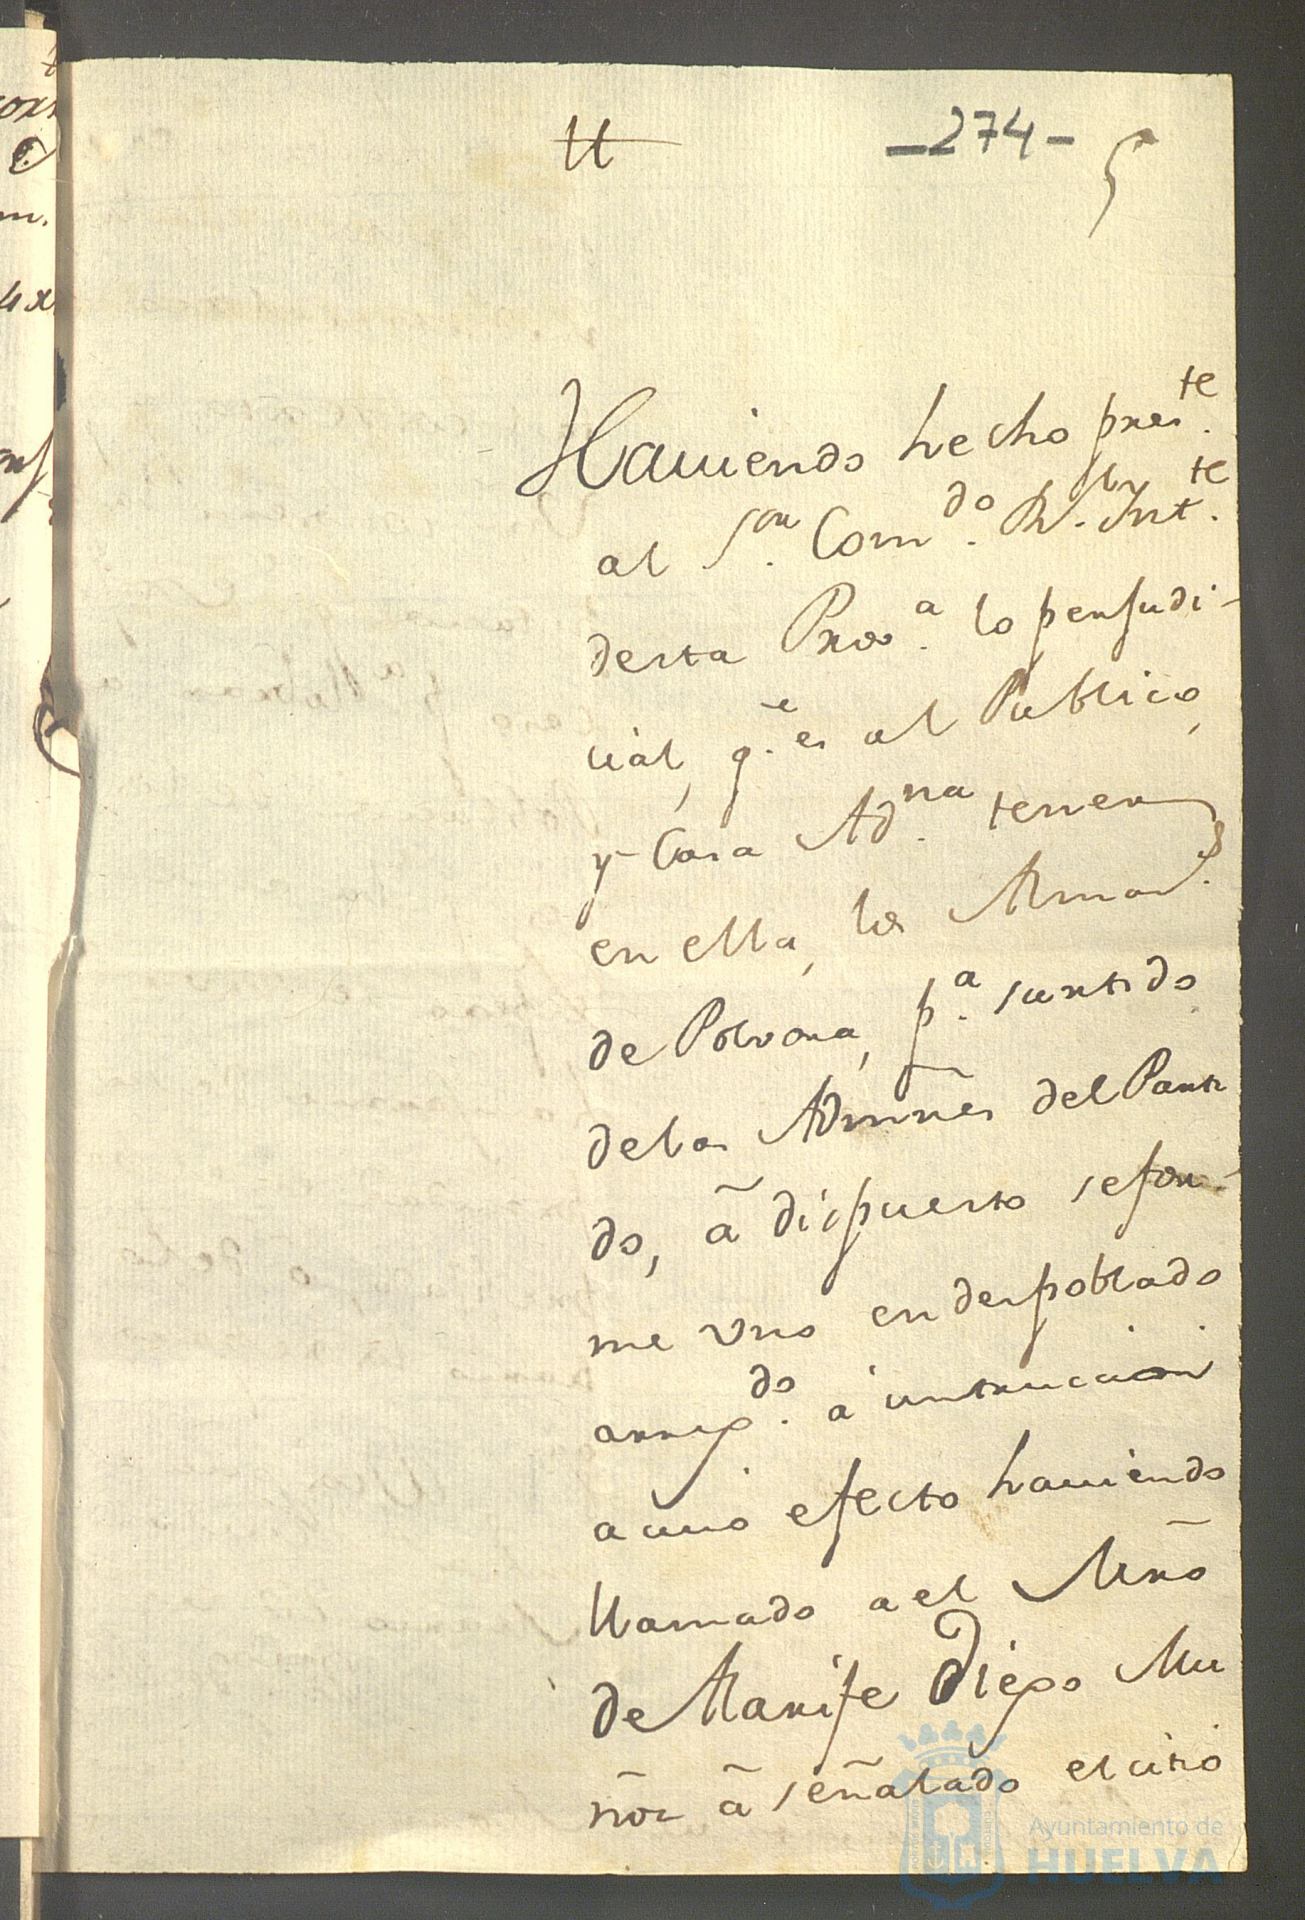 -274-
5
Haviendo hecho pres.te
al S.or Com.do R.l Int.te
desta Prov.a lo perjudi-
cial, q.e es al Publico,
y Casa Ad.na tener
en ella, los Almaz.s
de Polvora, p.a surtido
de las Admñes del Parti
do, ã dispuesto se for-
me uno en despoblado
arreg.do a intruccion
a cuio efecto haviendo
llamado a el Mrõ
de Alarife Diego Mu
ñoz ã señalado el citio
Ayuntamiento de
HUELVA